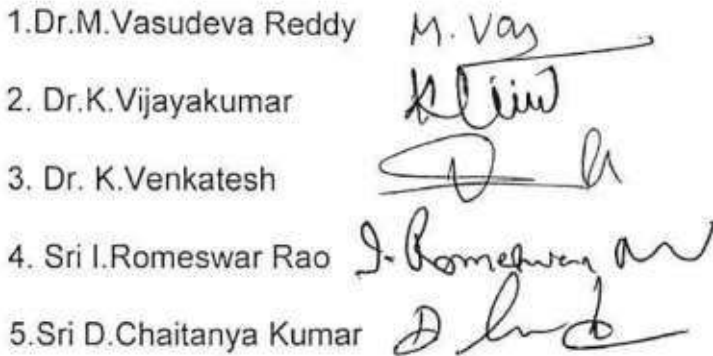 1.Dr.M.Vasudeva Reddy M. Vas
2. Dr.K.Vijayakumar
3. Dr. K.Venkatesh
4. Sri I.Romeswar Rao I. Romeswara
5.Sri D.Chaitanya Kumar D